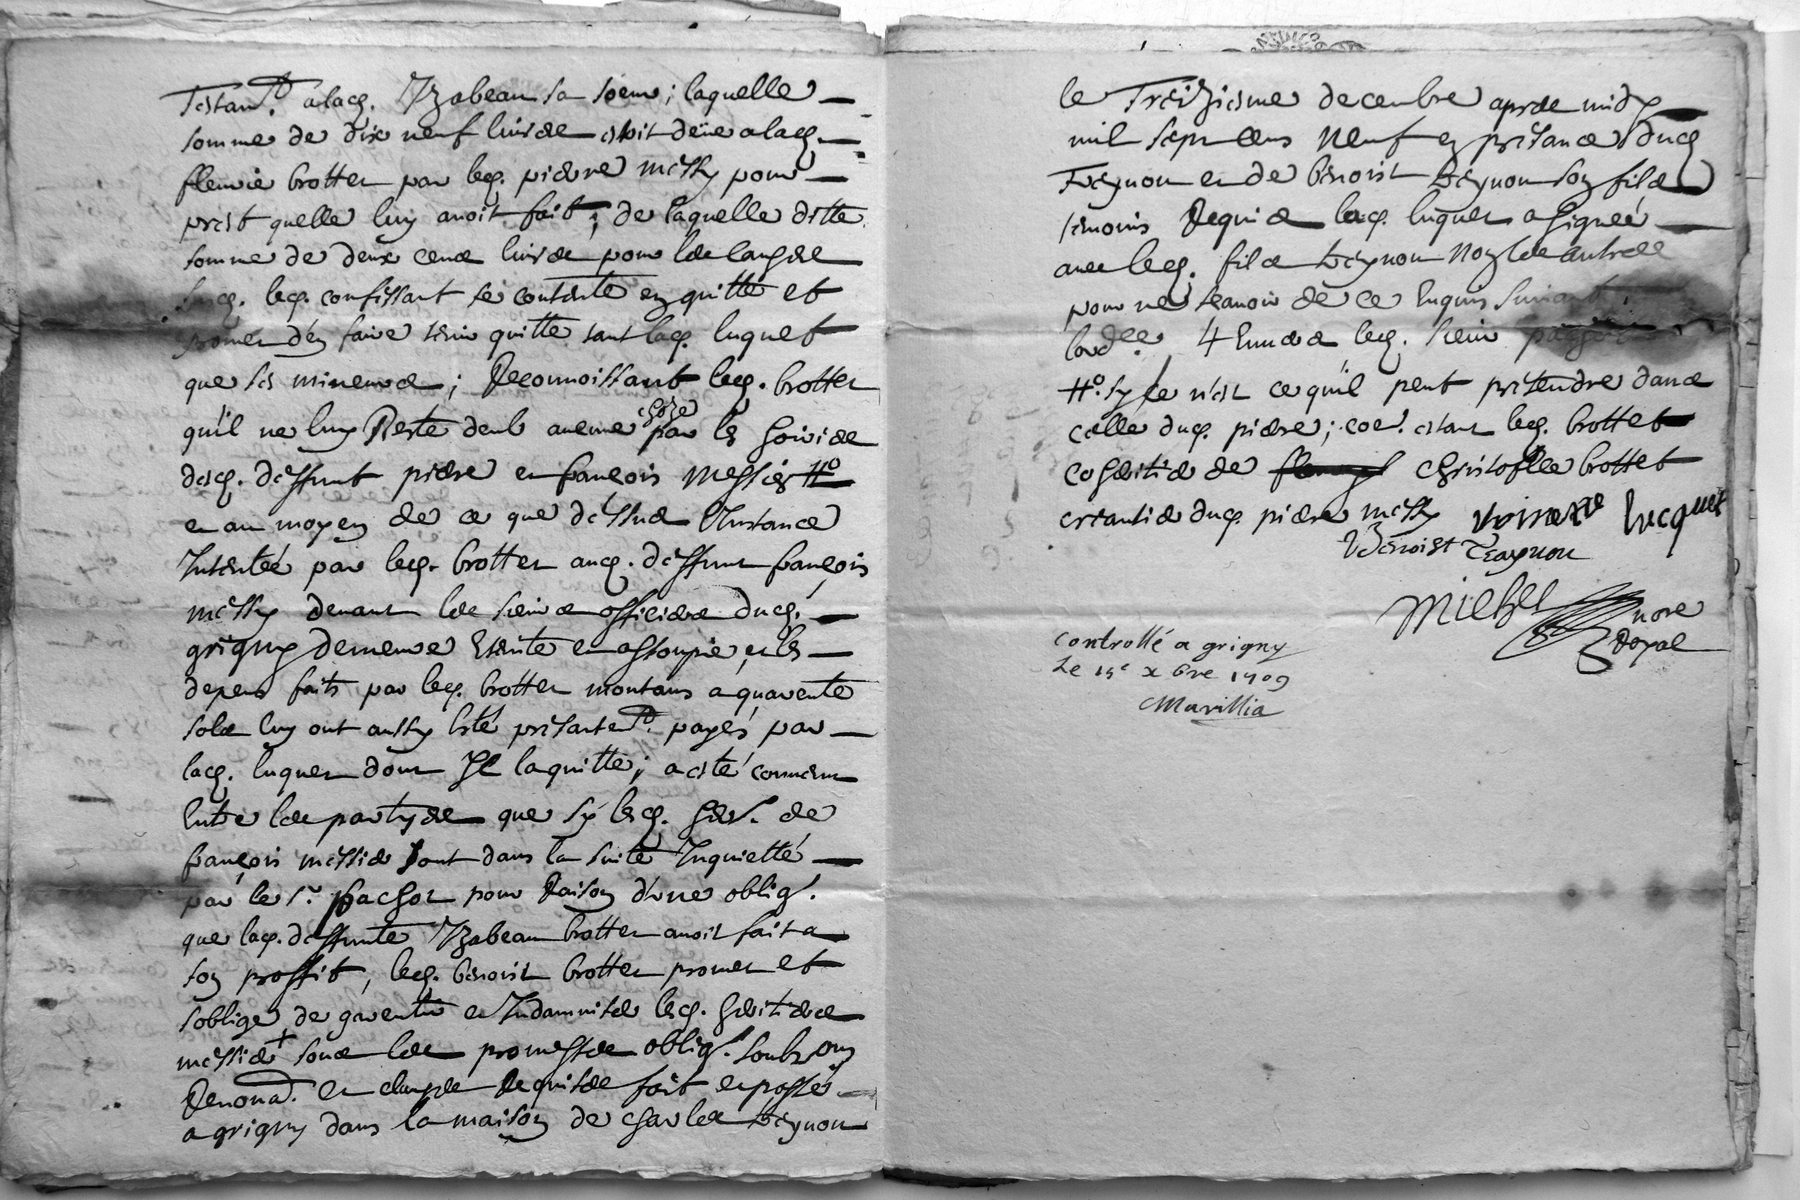 Testamt. a lacq. Yzabeau sa soeur ; laquelle
somme de dix neuf livres estoit deüe a lacq.
fleurie brottet par lecq. pierre messy pour
prest quelle luy avoit fait ; de laquelle ditte
somme de deux cens livres pour les causes
lecq. confessant se contente en quitte et
promet d'en faire tenir quitte tant lacq. luquet
que ses mineures ; Reconnoissant lecq. brottet
qu'il ne luy Reste deub aucune choze par les hoirs de
desq. deffunt pierre et françois Messier #o
et au moyen de ce que dessus L'Instance
Intentée par lecq. brottet aucq. deffunt françois
messy devant les sieurs officiers ducq.
grigny demeure Eteinte et assoupie, et les
depens faits par lecq. brottet montans a quarente
sols luy ont aussy Esté présentemt. payés par
lacq. luquet dont Il la quitte ; a esté convenu
Entre les partyes que sy lesq. her. de
françois messie sont dans la suite Inquietté
par le sr. pachot pour Raison d'une obligõn.
que lacq. deffunte Yzabeau brottet avoit fait a
son proffit, lecq. benoist brottet promet et
s'oblige de garentir et Indamniser lesq. heritiers
messie + sous les promesses oblig. soubson
Renona. et clauses Requises fait et passé
a grigny dans la maison de charles treynon
le Treiziesme decembre apres midy
mil sept cens Neuf en presance ducq
Treynon et de benoist treynon son fils
temoins Requis lacq. luquet a signée
avec lecq. fils treynon Non les autres
pour ne sçavoir de ce Enquis suivant
lordce. 4 Envers lecq. sieur
#o. sy ce n'est ce qu'il peut pretendre dans
celle ducq. pierre ; coe. estant lecq. brottet
coheritier de christofle brottet
creantier ducq. pierre messy lucquet
Benoist Treaynon
Michel nore
Royal
controllé a grigny
Le 15e xbre 1709
Marillia